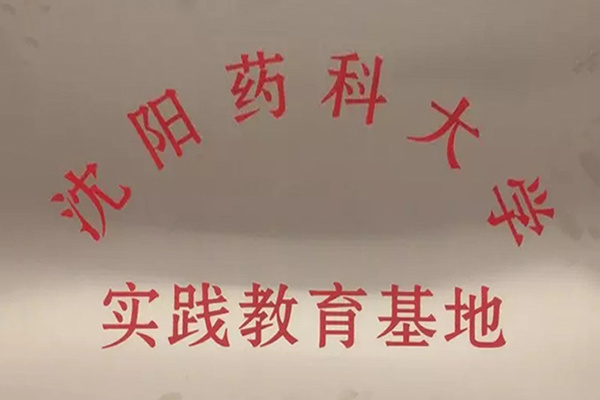 沈阳药科大学
实践教育基地